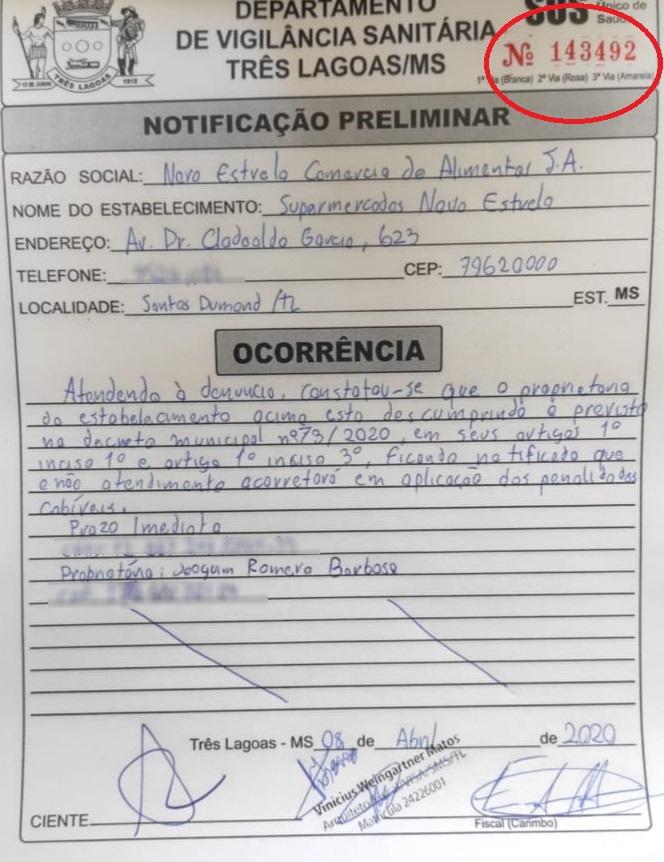 DEPARTAMENTO
DE VIGILÂNCIA SANITÁRIA
TRÊS LAGOAS/MS
SUS Único de Saúde
Nº 143492
1ª Via (Branca) 2ª Via (Rosa) 3ª Via (Amarela)
TRÊS LAGOAS
NOTIFICAÇÃO PRELIMINAR
RAZÃO SOCIAL: Novo Estrela Comercio de Alimentos S.A.
NOME DO ESTABELECIMENTO: Supermercados Nova Estrela
ENDEREÇO: Av. Dr. Clodoaldo Garcia, 623
TELEFONE: CEP: 79620000
LOCALIDADE: Santos Dumond /TL EST. MS
OCORRÊNCIA
Atendendo à denuncia, constatou-se que o proprietario
do estabelecimento acima esta descumprindo o previsto
no decreto municipal nº 73/2020, em seus artigos 1º
inciso 1º e artigo 1º inciso 3º, ficando notificado que
o não atendimento acarretará em aplicação das penalidades
cabíveis.
Prazo Imediato
Proprietário: Joaquim Romero Barbosa
Três Lagoas - MS 08 de Abril de 2020
Vinicius Weingartner Matos
Arquiteto VISA/SMS/TL
Matrícula 24226001
CIENTE
Fiscal (Carimbo)